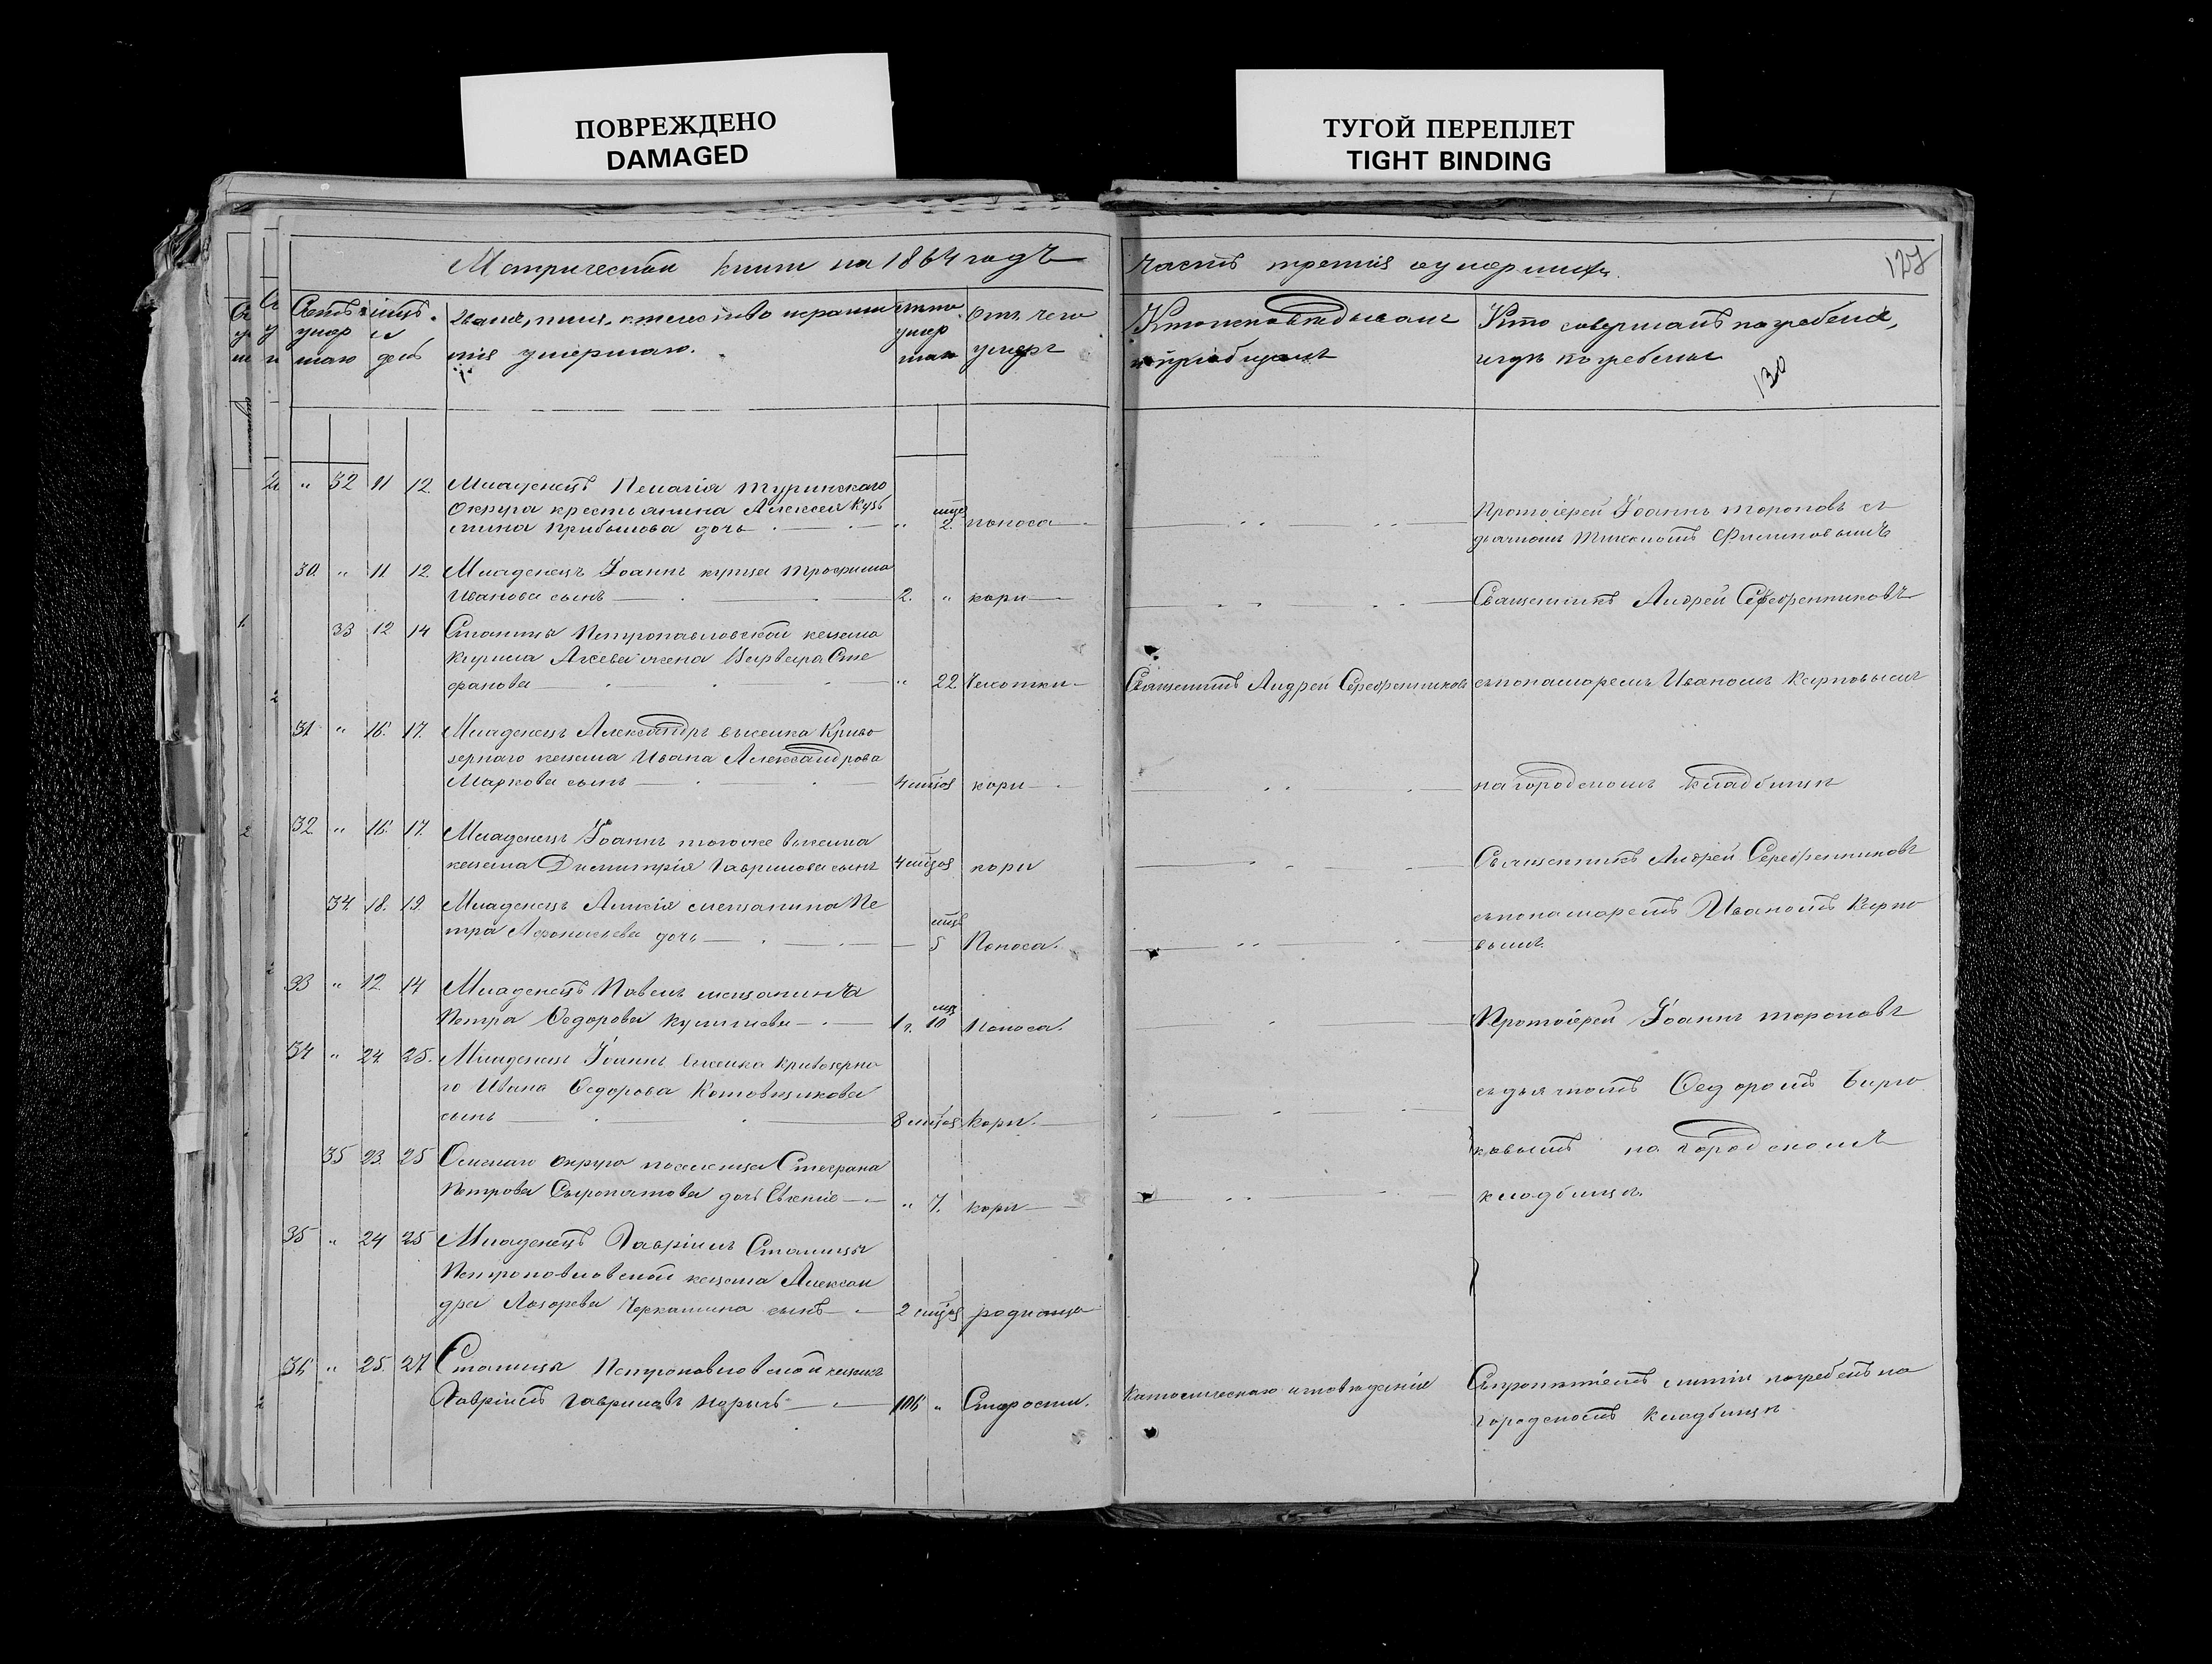 ПОВРЕЖДЕНО
DAMAGED
ТУГОЙ ПЕРЕПЛЕТ
TIGHT BINDING
Метрической книги на 1864 годъ
часть третія оумершихъ.
127
130
Счетъ
умер
шаго
день
Званіе, имя, отчество и фамилія
умершаго.
умер
шаго
Отъ чего
умеръ
Кто исповѣдывалъ
и пріобщалъ
Кто совершалъ погребеніе,
и гдѣ погребены
" 32 11 12. Младенецъ Пелагія Туринскаго
округа крестьянина Алексея Кузь
мина Прибылова дочь " 2. поноса
Протоіерей Іоаннъ Тороповъ съ
дьячкомъ Филиповымъ
30. " 11 12. Младенецъ Іоаннъ купца Трофима
Иванова сынъ 2. " кори
Священникъ Андрей Серебренниковъ
33 12 14 Станицы Петропавловской казака
Кирила Агеева жена Варвара Сте
фанова " 22 Чахотки
Священникъ Андрей Серебренниковъ
съ пономаремъ Иваномъ Карповымъ
31 " 16. 17. Младенецъ Александръ выселка Криво
зернаго казака Ивана Александрова
Маркова сынъ 4 мцов кори
на городскомъ кладбищѣ
32 " 16. 17. Младенецъ Іоаннъ тогоже выселка
казака Димитрія Гаврилова сынъ 4 мцов кори
Священникъ Андрей Серебренниковъ
34. 18. 19. Младенецъ мещанина Пе
тра Афонасьева дочь 5 Поноса.
съ пономаремъ Иваномъ Карпо
вымъ.
33 " 12. 14 Младенецъ Павелъ мещанина
Петра Федорова 1 г. 10 Поноса.
Протоіерей Іоаннъ Тороповъ
34 " 24 25. Младенецъ Іоаннъ выселка Кривозерна
го Ивана Федорова Котовщикова
сынъ 8 мцов Кори.
съ дьячкомъ Федоромъ Бирю
35 23. 25 Омскаго округа поселенца Стефана
Петрова Сыропятова дочь Евгенія " 7. кори
ковымъ на городскомъ
кладбищѣ.
35 " 24 25 Младенецъ Гавріилъ Станицы
Петропавловской казака Алексан
дра Лазарева Черкашина сынъ 2 мцов родимца
36 " 25. 27 Станицы Петропавловской казакъ
Гавріилъ Гавриловъ 106 " Старости.
Католическаго исповѣданія
литіи погребенъ на
городскомъ кладбищѣ.